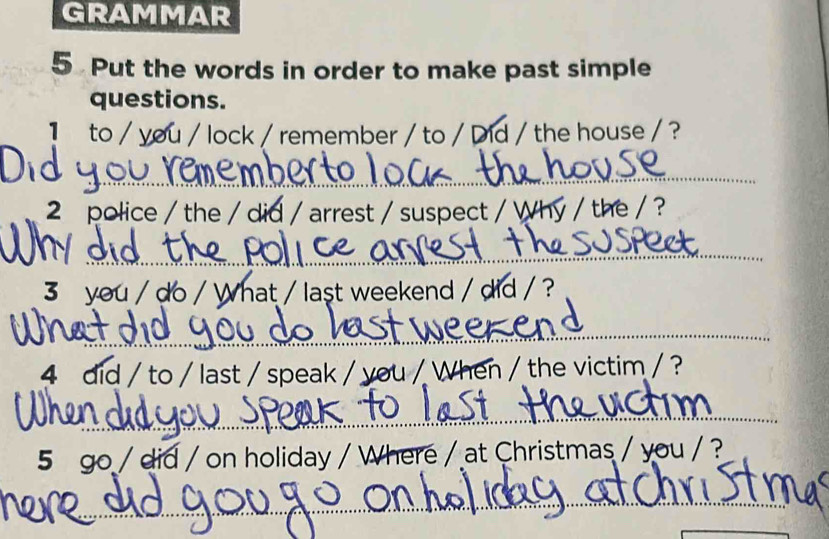 GRAMMAR
5 Put the words in order to make past simple
questions.
1 to / you / lock / remember / to / Did / the house / ?
Did you remember to lock the house
2 police / the / did / arrest / suspect / Why / the / ?
Why did the police arrest the suspect
3 you / do / What / last weekend / did / ?
What did you do last weekend
4 did / to / last / speak / you / When / the victim / ?
When did you speak to last the victim
5 go / did / on holiday / Where / at Christmas / you / ?
here did you go on holiday at christmas